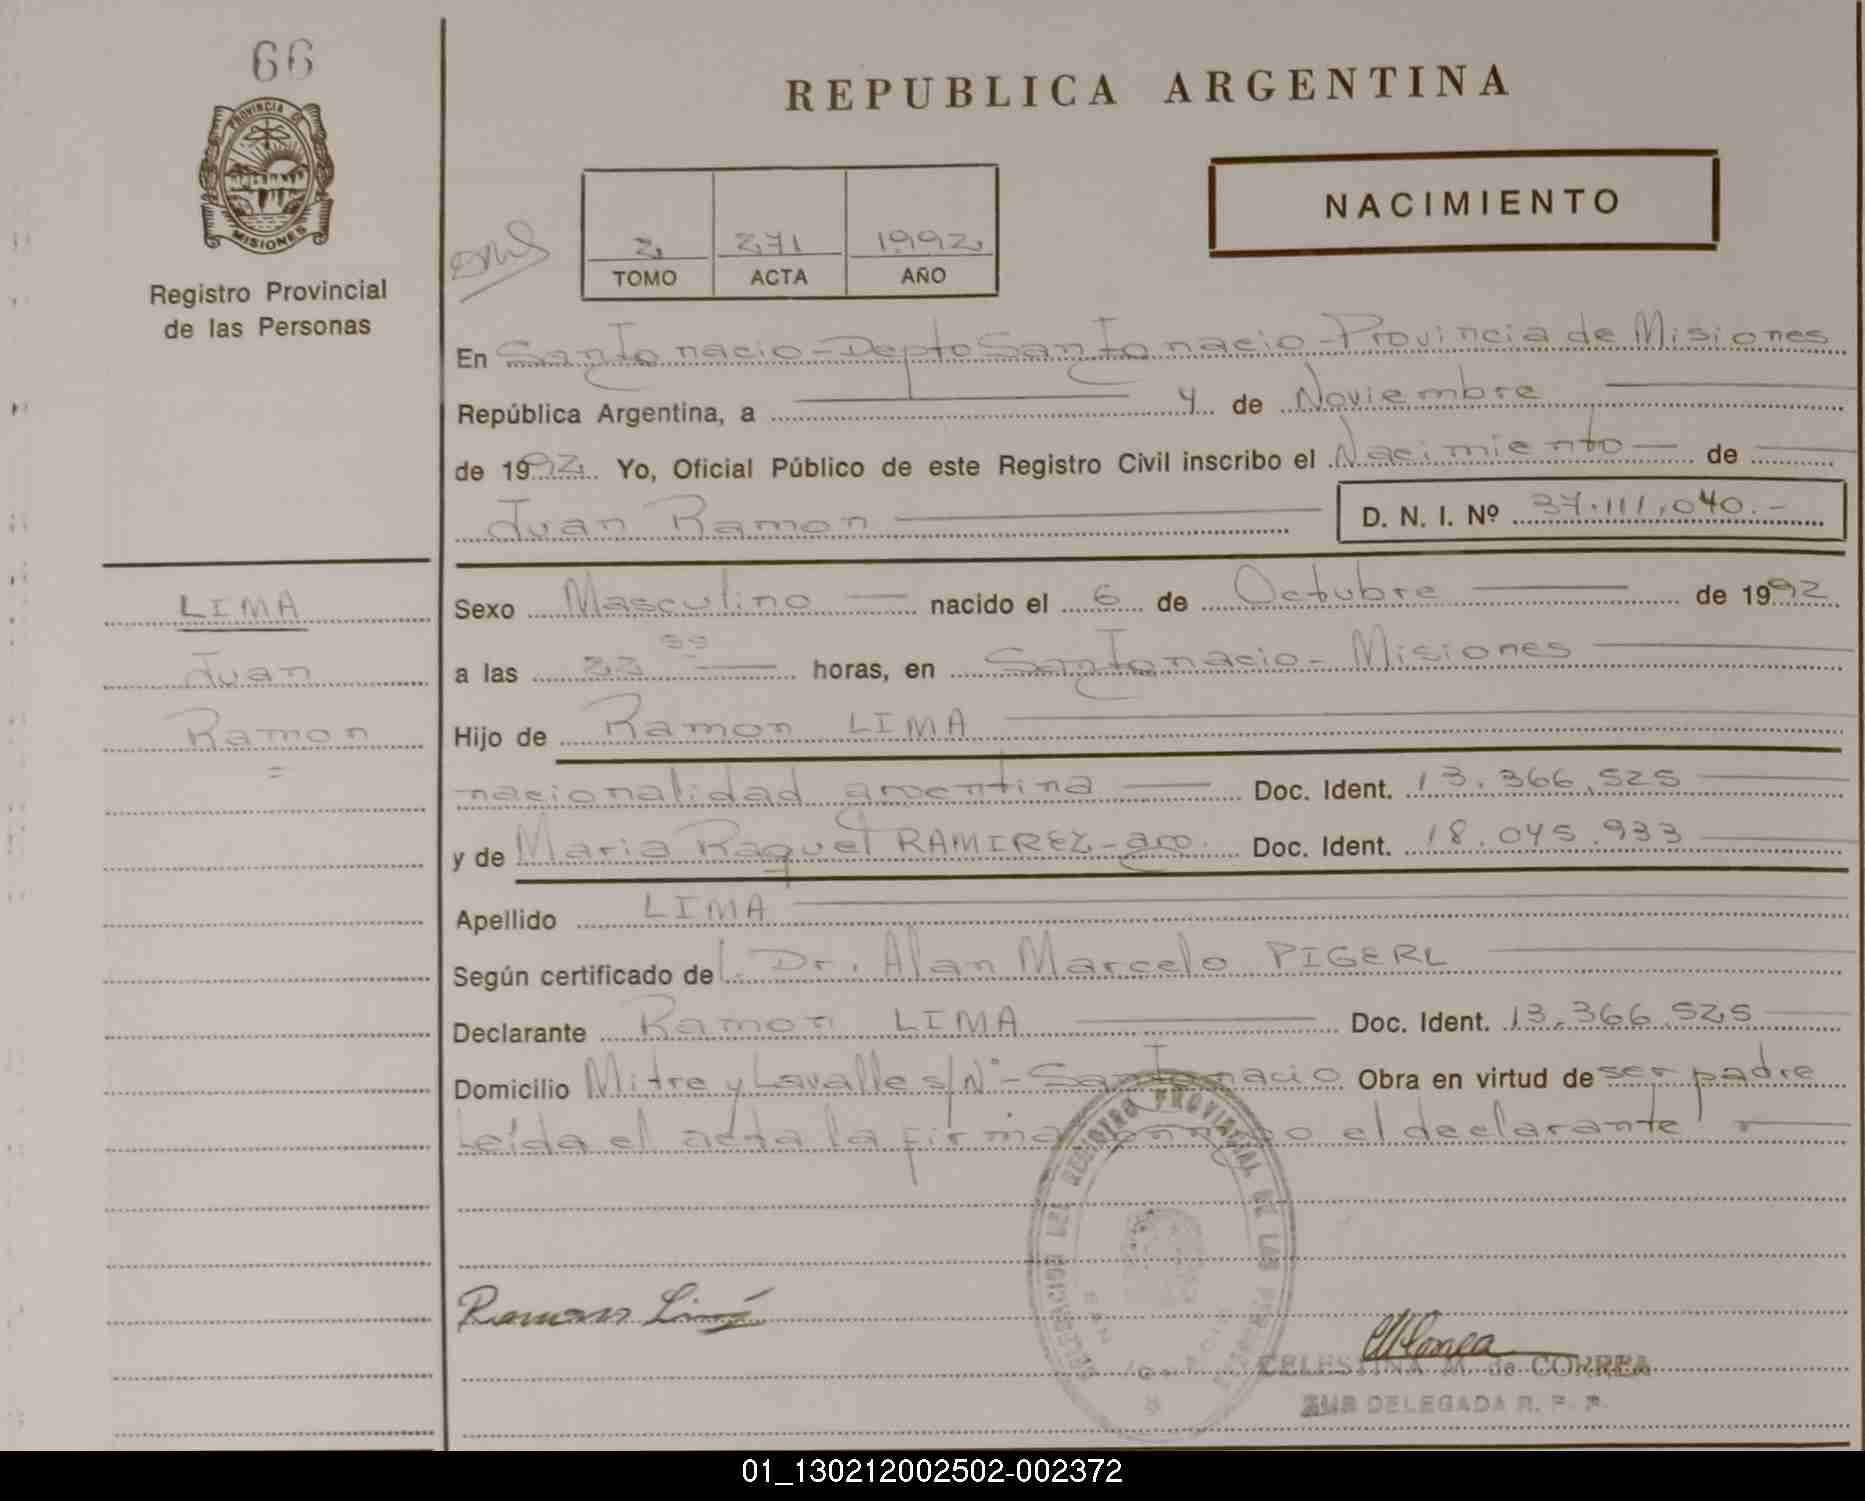 66
PROVINCIA DE
MISIONES
Registro Provincial
de las Personas
REPUBLICA ARGENTINA
NACIMIENTO
2 271 1992
TOMO ACTA AÑO
En San Ignacio - Depto San Ignacio - Provincia de Misiones
República Argentina, a 4 de Noviembre
de 1992 Yo, Oficial Público de este Registro Civil inscribo el Nacimiento de
Juan Ramon D. N. I. Nº 37.111.040.-
LIMA
Juan
Ramon
Sexo Masculino nacido el 6 de Octubre de 1992
a las horas, en San Ignacio - Misiones
Hijo de Ramon LIMA
nacionalidad argentina Doc. Ident. 13.366.525
y de Maria Raquel RAMIREZ - arg. Doc. Ident. 18.045.933
Apellido LIMA
Según certificado de Dr. Alan Marcelo PIGERL
Declarante Ramon LIMA Doc. Ident. 13.366.525
Domicilio Mitre y Lavalle s/Nº - San Ignacio Obra en virtud de ser padre
Leída el acta la firma conmigo el declarante
REGISTRO PROVINCIAL DE LAS PERSONAS
Ramon Lima
CELESTINA M. de CORREA
SUB DELEGADA R. P. P.
01_130212002502-002372